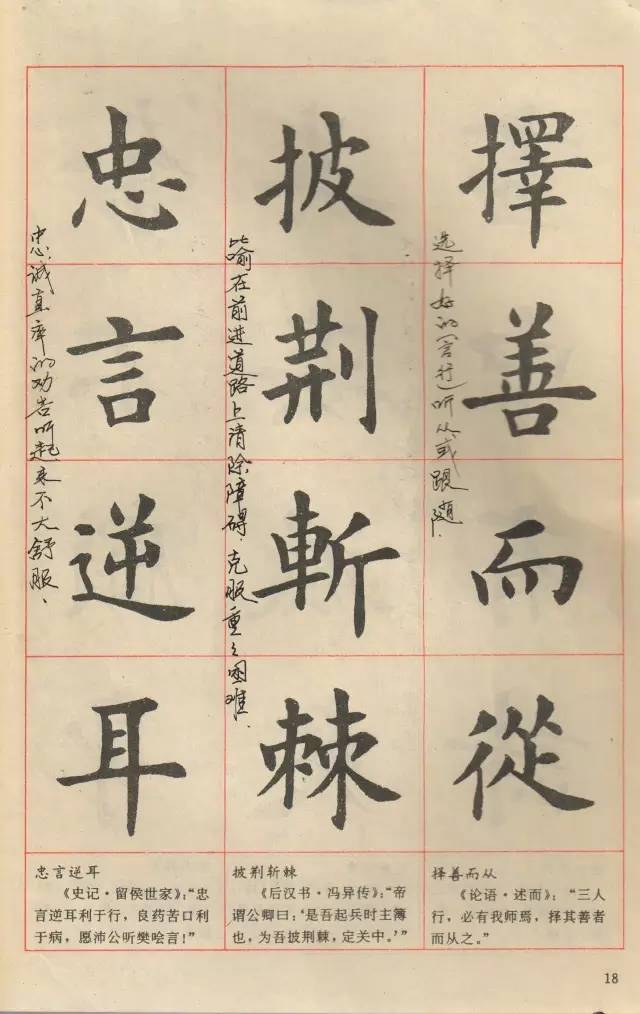 擇善而從
选择好的(言行)听从或跟随.
披荆斬棘
比喻在前进道路上清除障碍.克服重々困难.
忠言逆耳
忠诚直率的劝告听起来不大舒服.
忠言逆耳
《史记·留侯世家》:“忠
言逆耳利于行，良药苦口利
于病，愿沛公听樊哙言!”
披荆斩棘
《后汉书·冯异传》:“帝
谓公卿曰:‘是吾起兵时主簿
也，为吾披荆棘，定关中。’”
择善而从
《论语·述而》:“三人
行，必有我师焉，择其善者
而从之。”
18